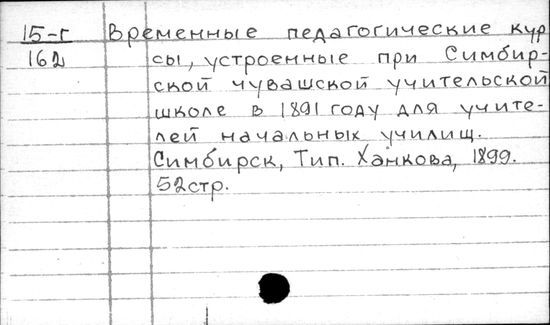 15-г Временные педагогические кур
162 сы, устроенные при Симбир-
ской чувашской учительской
школе в 1891 году для учите-
лей начальных училищ.
Симбирск, Тип. Ханкова, 1899.
52стр.